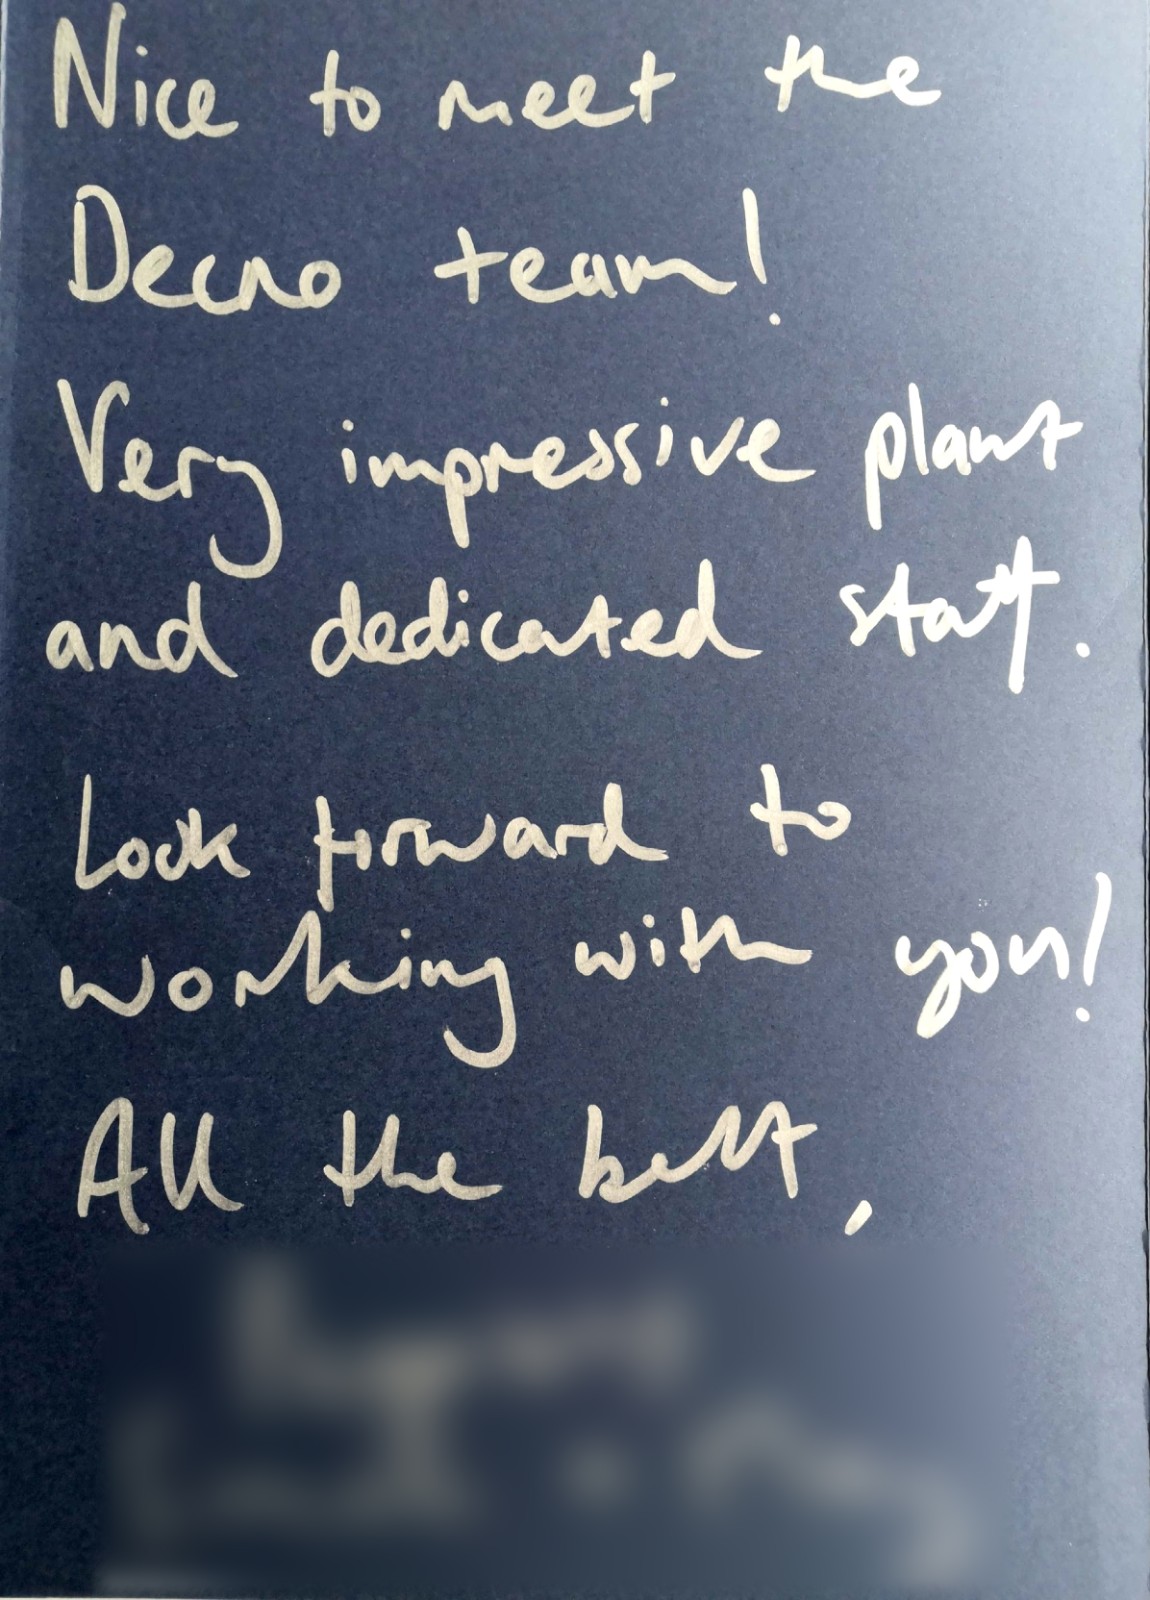 Nice to meet the
Decno team!
Very impressive plant
and dedicated staff.
Look forward to
working with you!
All the best,